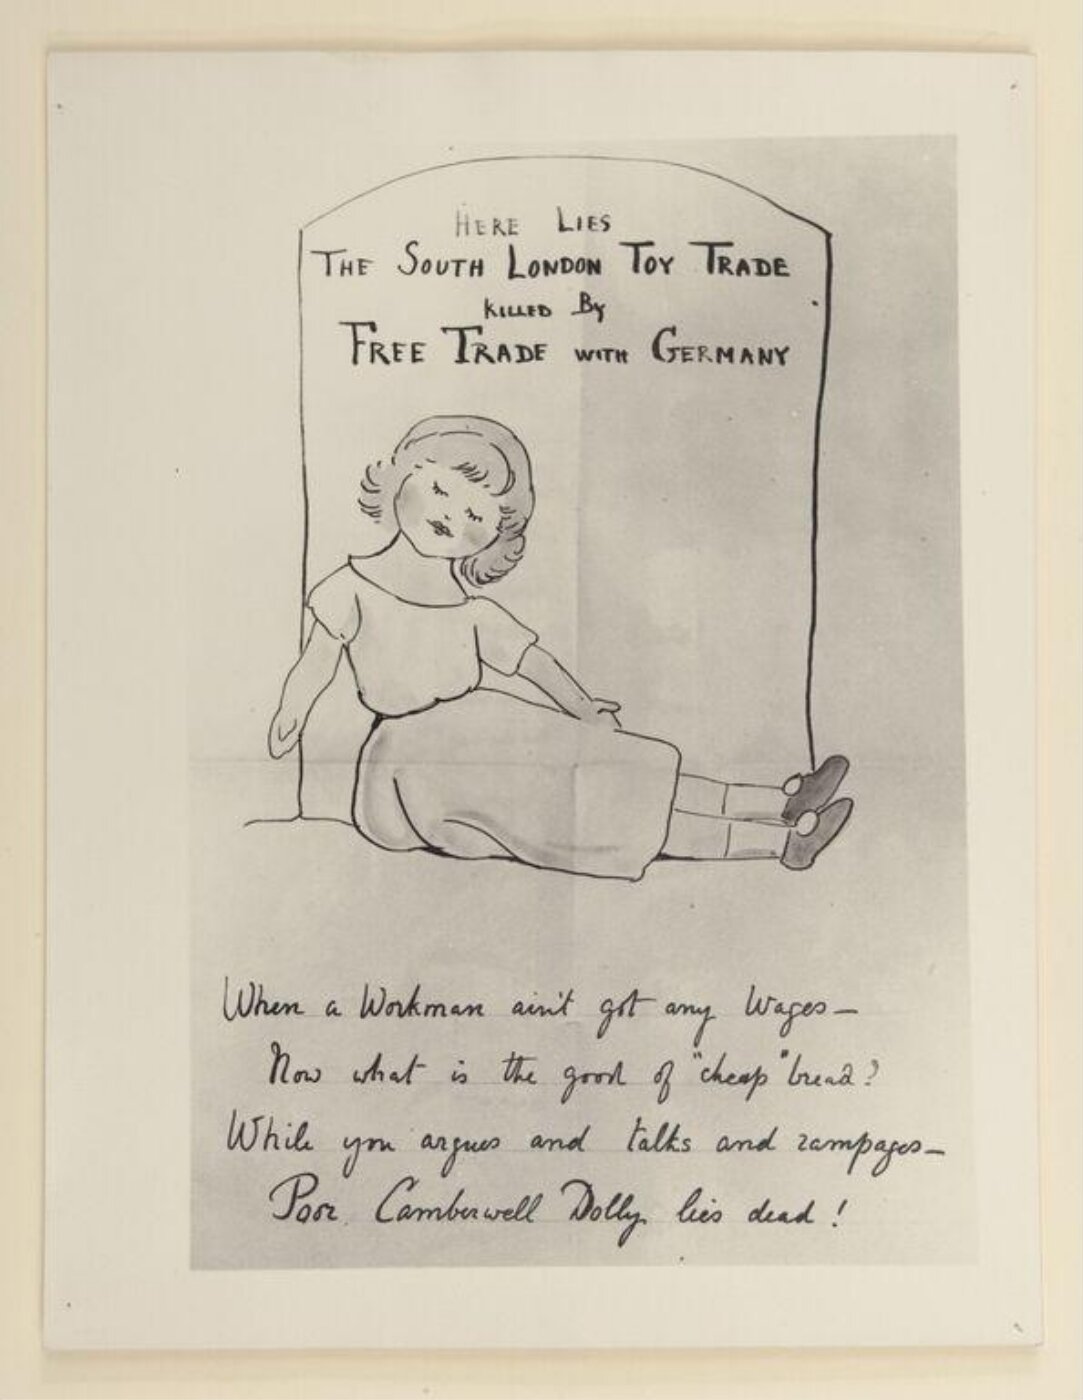 HERE LIES
THE SOUTH LONDON TOY TRADE
KILLED By
FREE TRADE WITH GERMANY
When a Workman ain't got any Wages—
Now what is the good of "cheap" bread?
While you argues and talks and rampages—
Poor Camberwell Dolly lies dead!